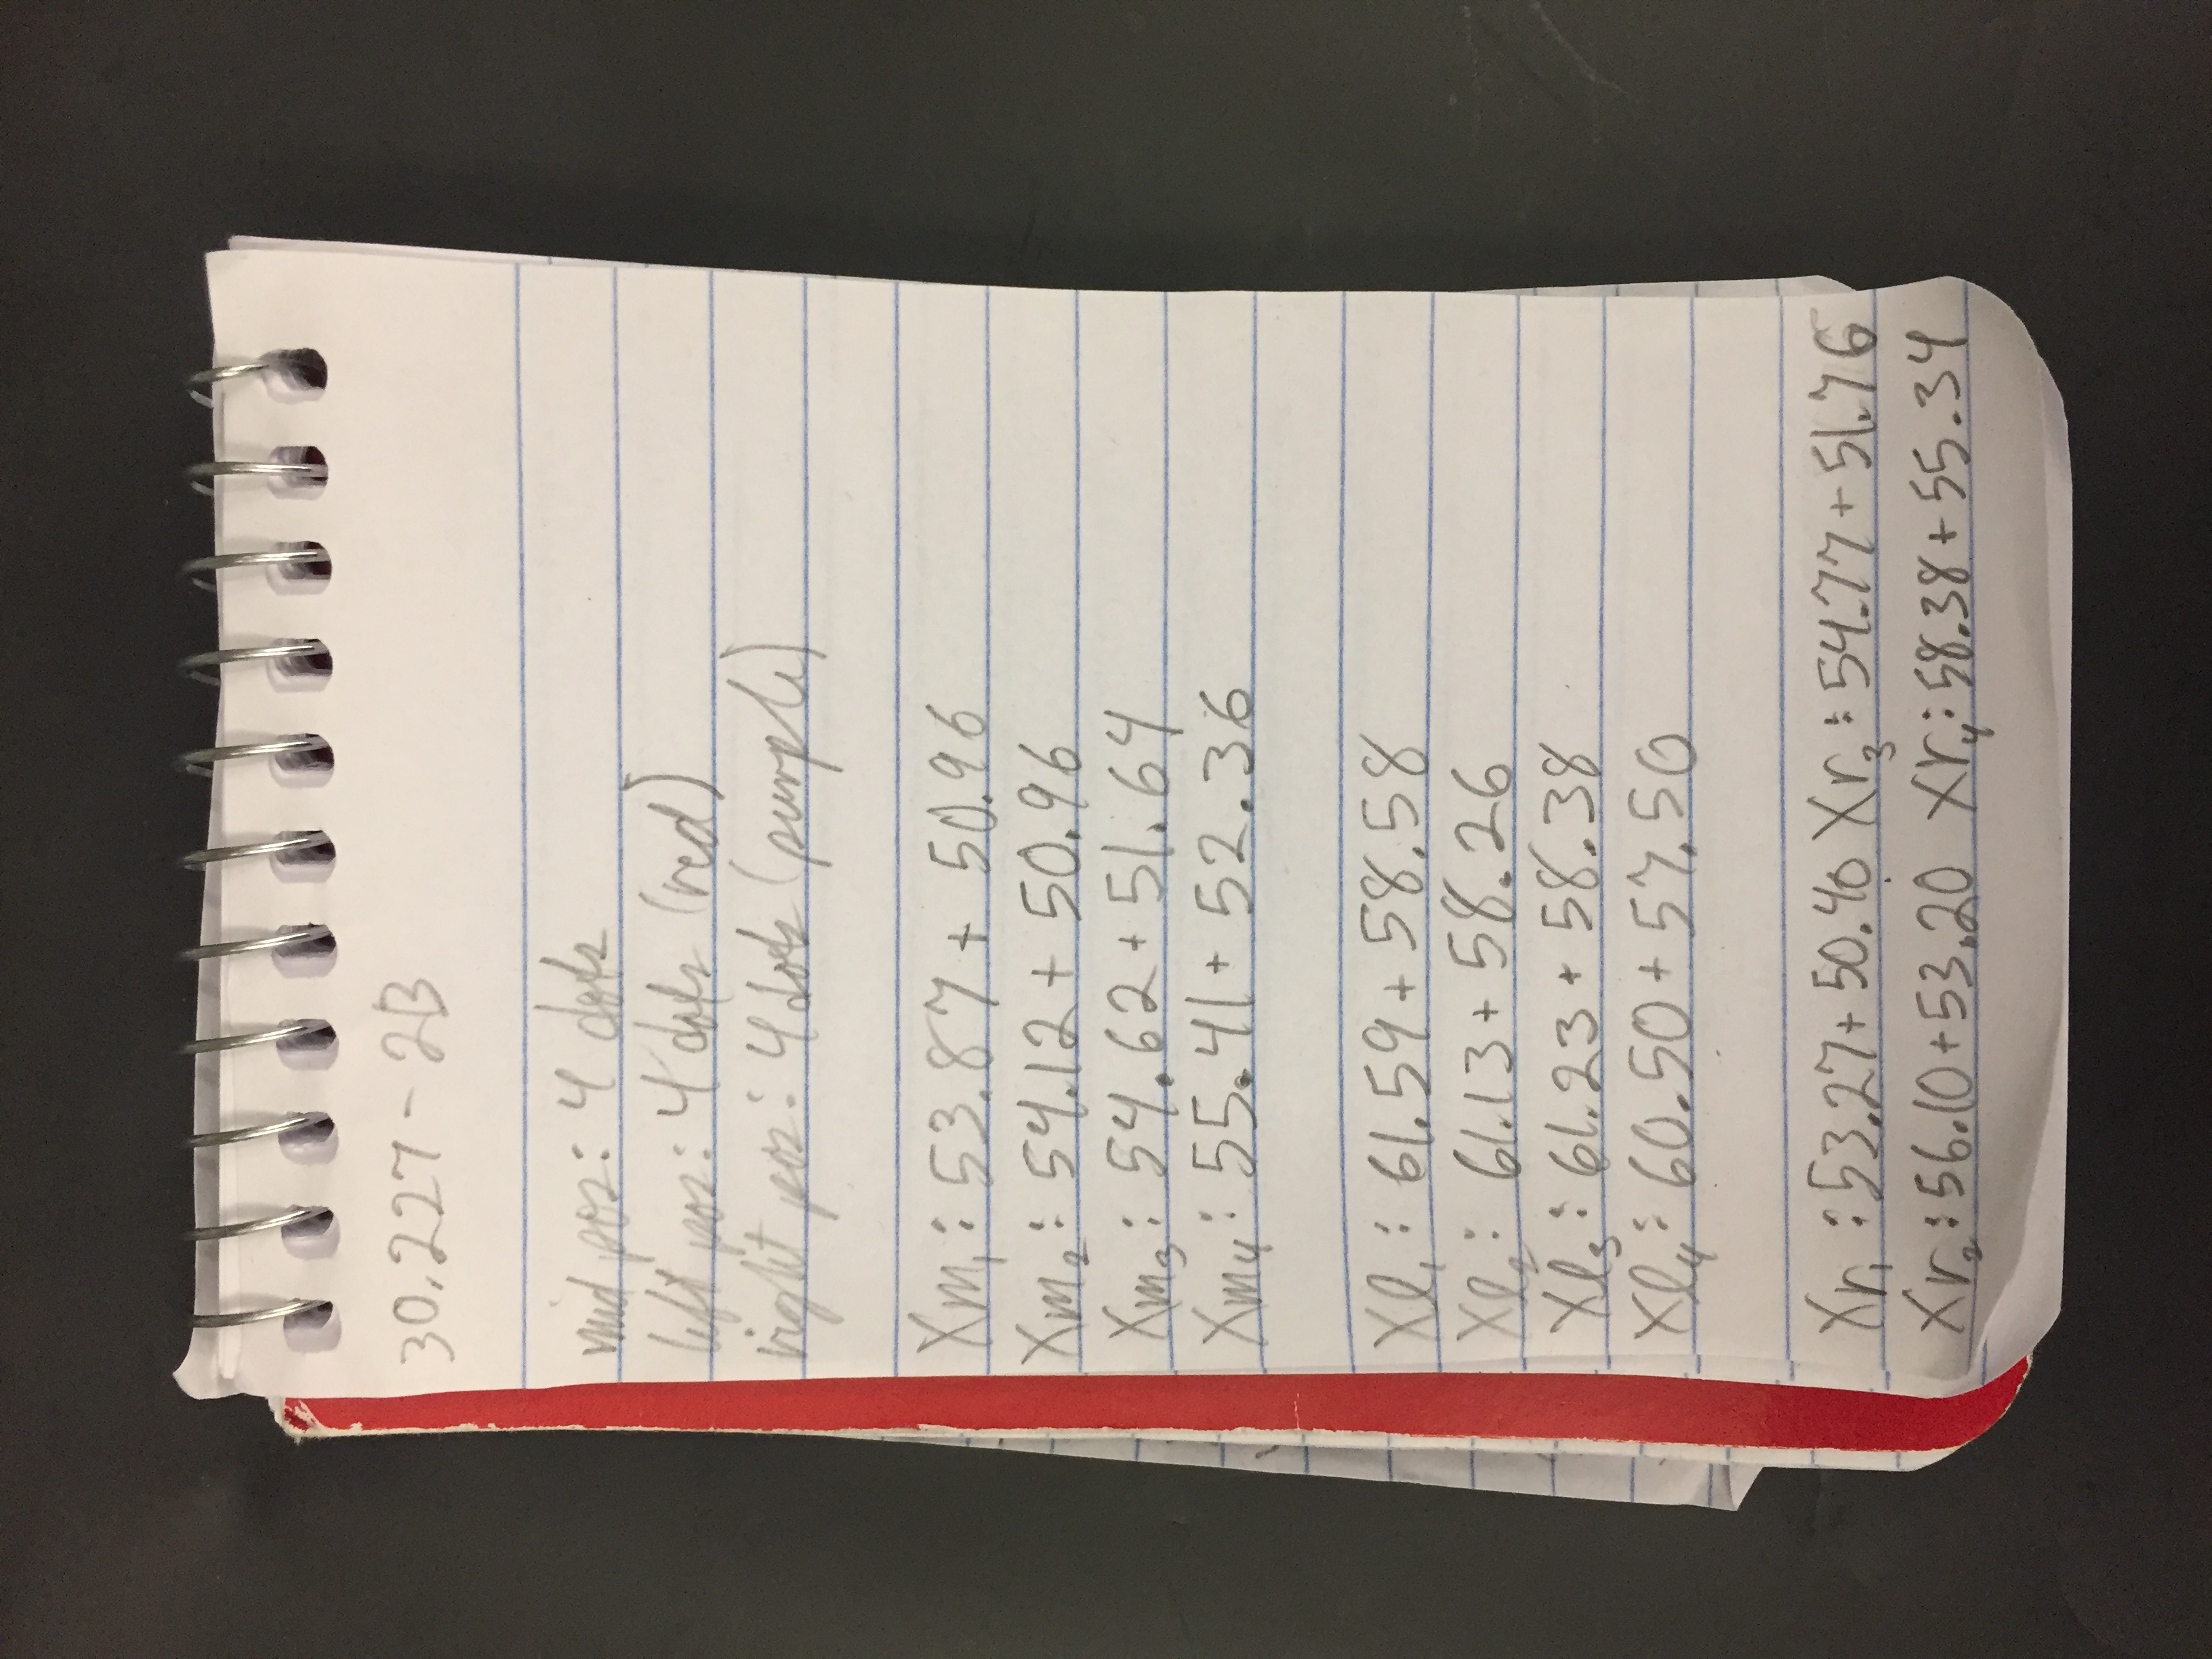 30.227 - 2B
mid pos: 4 dots
left pos: 4 dots (red)
right pos: 4 dots (purple)
Xm₁: 53.87 + 50.96
Xm₂: 54.12 + 50.96
Xm₃: 54.62 + 51.64
Xm₄: 55.41 + 52.36
Xl₁: 61.59 + 58.58
Xl₂: 61.13 + 58.26
Xl₃: 61.23 + 58.38
Xl₄: 60.50 + 57.50
Xr₁: 53.27 + 50.40 Xr₃: 54.77 + 51.76
Xr₂: 56.10 + 53.20 Xr₄: 58.38 + 55.34